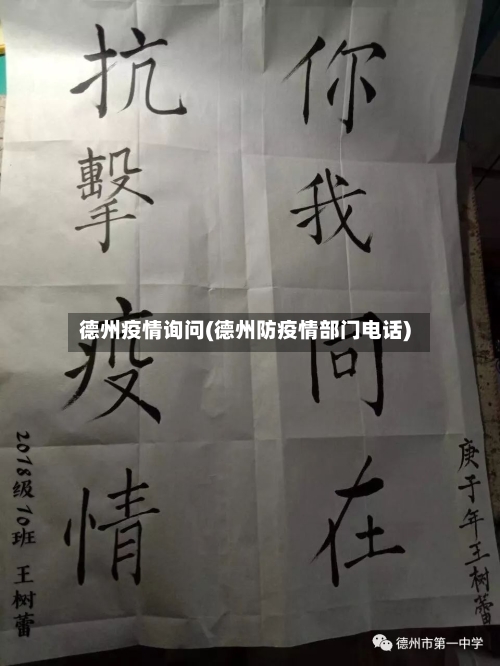 你我同在
抗擊疫情
庚子年王树蕾
2018级10班 王树蕾
德州疫情询问(德州防疫情部门电话)
德州市第一中学